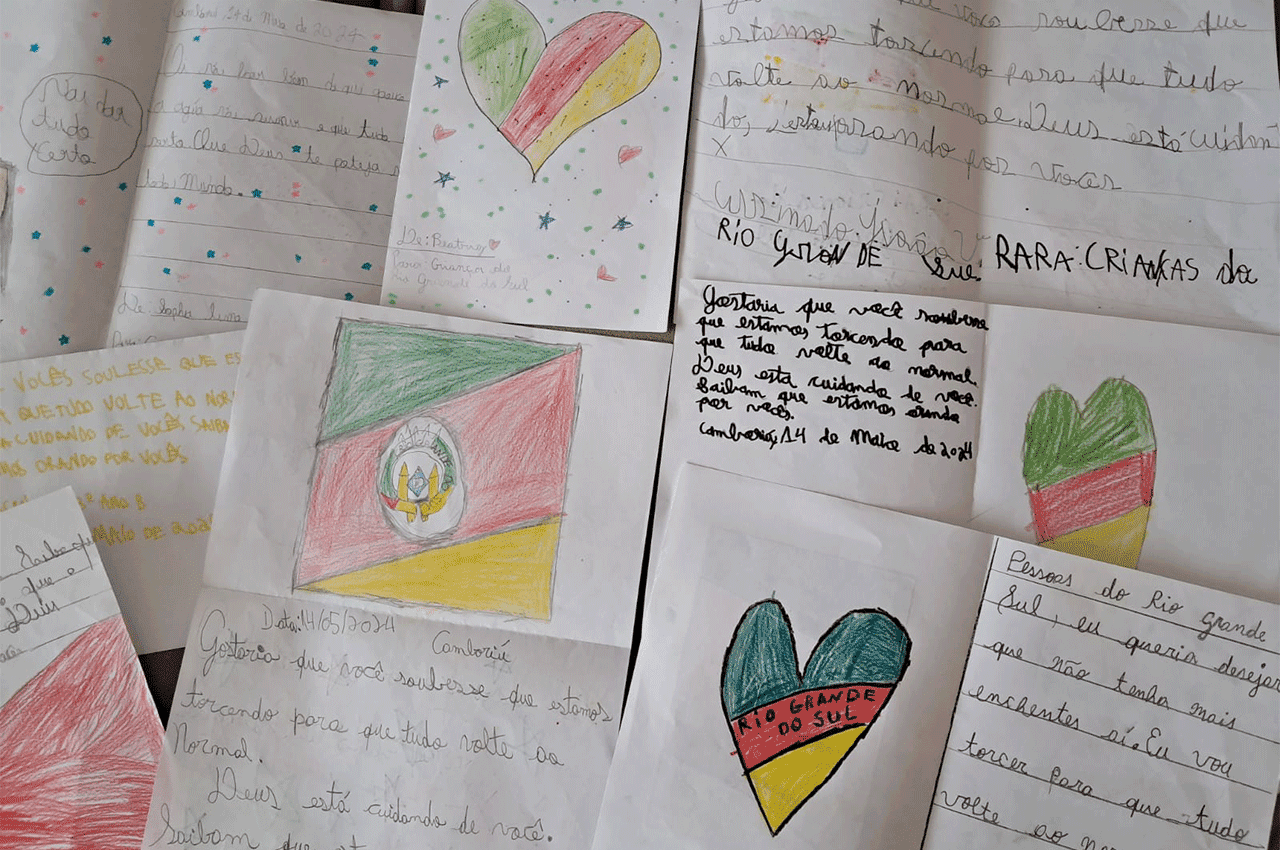 24 de Maio de 2024
Vai dar
tudo
certo
que Deus te proteja
todo Mundo.
De: Sophia
De: Beatriz
Para: Crianças do
Rio Grande do Sul
você soubesse que
estamos torcendo para que tudo
volte ao normal. Deus está cuidan
do, orando por voces
X
Assinado: João
RIO GRANDE SUL RARA: CRIANÇAS do
Gostaria que você soubesse
que estamos torcendo para
que tudo volte ao normal.
Deus está cuidando de você.
Saibam que estamos orando
por vocês.
Camboriú, 14 de Maio de 2024
VOCÊS SOULESSE QUE ES
QUE TUDO VOLTE AO NOR
CUIDANDO DE VOCÊS SAIBA
MOS ORANDO POR VOCÊS
ANO B
MAIO DE 202
Saibe
que e
Deus
Data: 14/05/2024
Camboriú
Gostaria que você soubesse que estamos
torcendo para que tudo volte ao
Normal.
Deus está cuidando de você.
Saibam que
RIO GRANDE
DO SUL
Pessoas do Rio grande
Sul, eu queria desejar
que não tenha mais
enchentes aí. Eu vou
torcer para que tudo
volte ao no